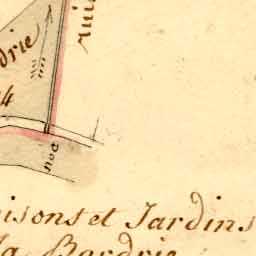 drie
rui
4
noé
isons et Jardins
la Bordrie